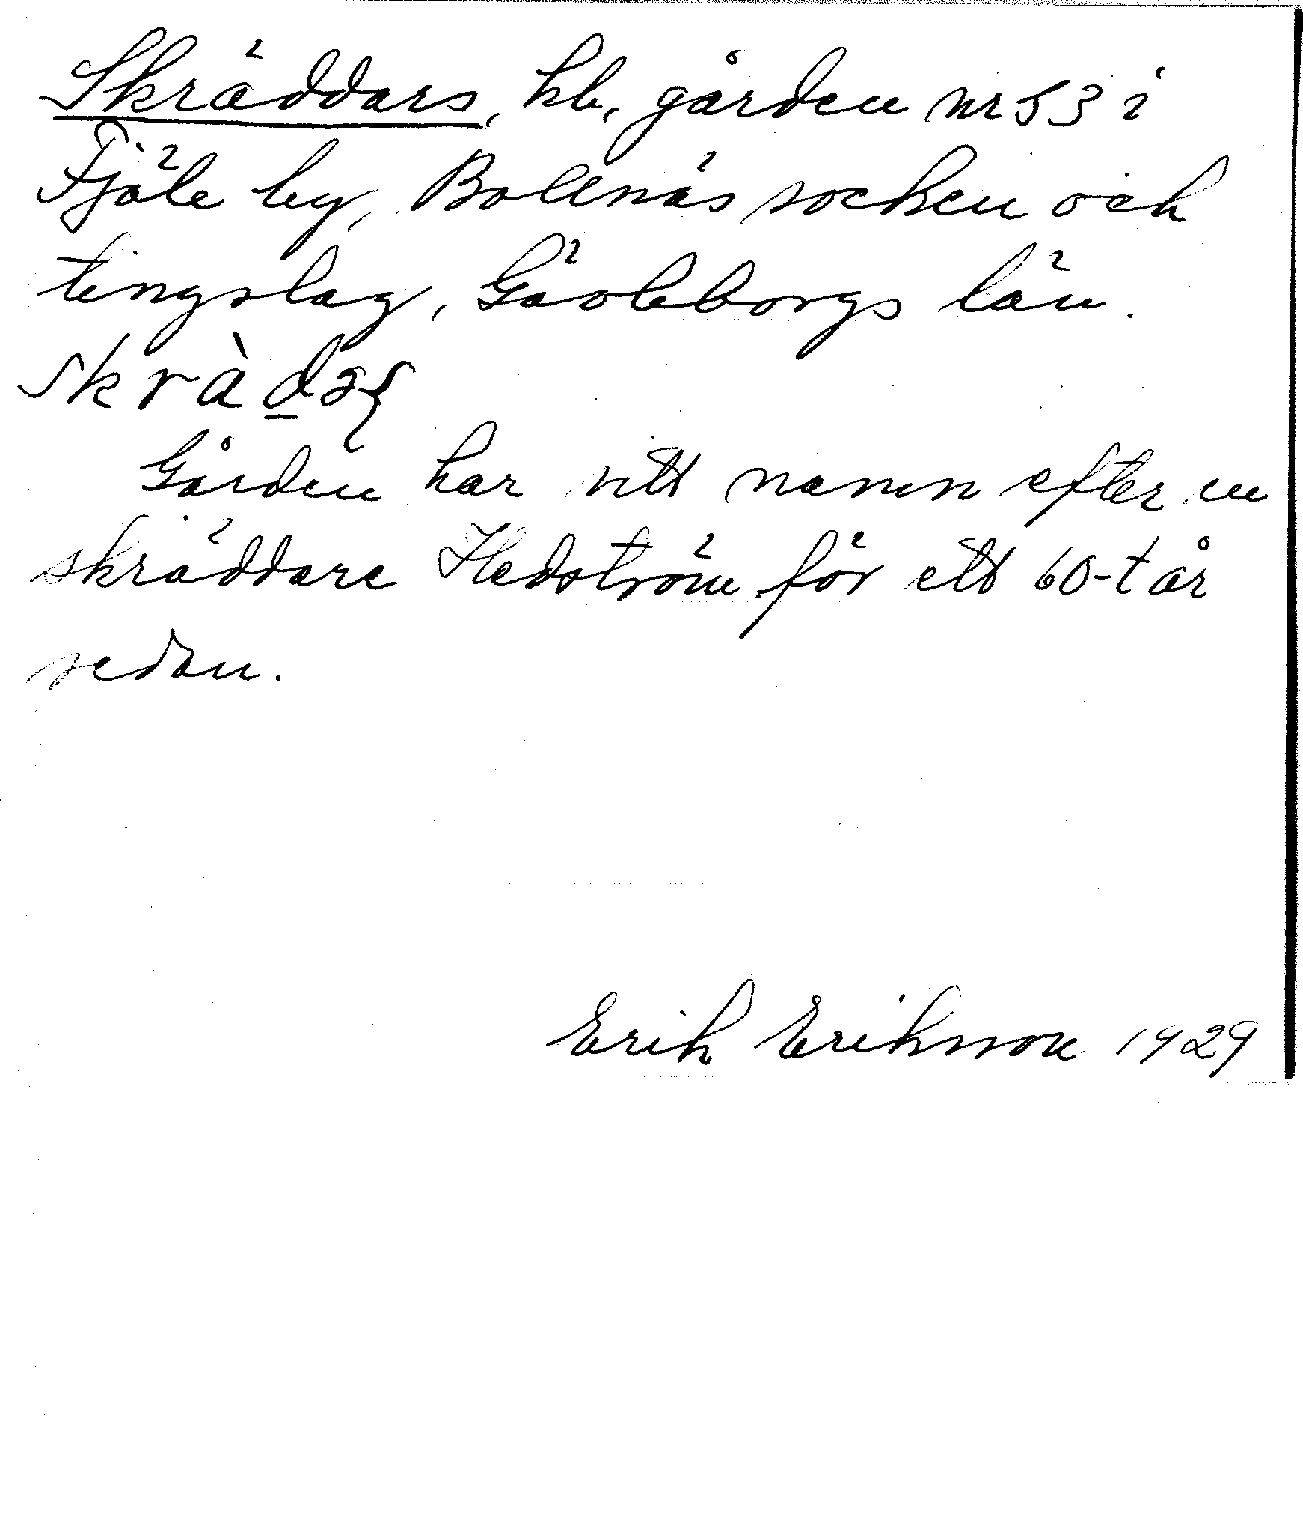 Skräddars, hb, gården nr 53 i
Fjäle by, Bollnäs socken och
tingslag, Gävleborgs län.
skràd̲əʂ
Gården har sitt namn efter en
skräddare Hedström för ett 60-t år
sedan.
Erik Eriksson 1929